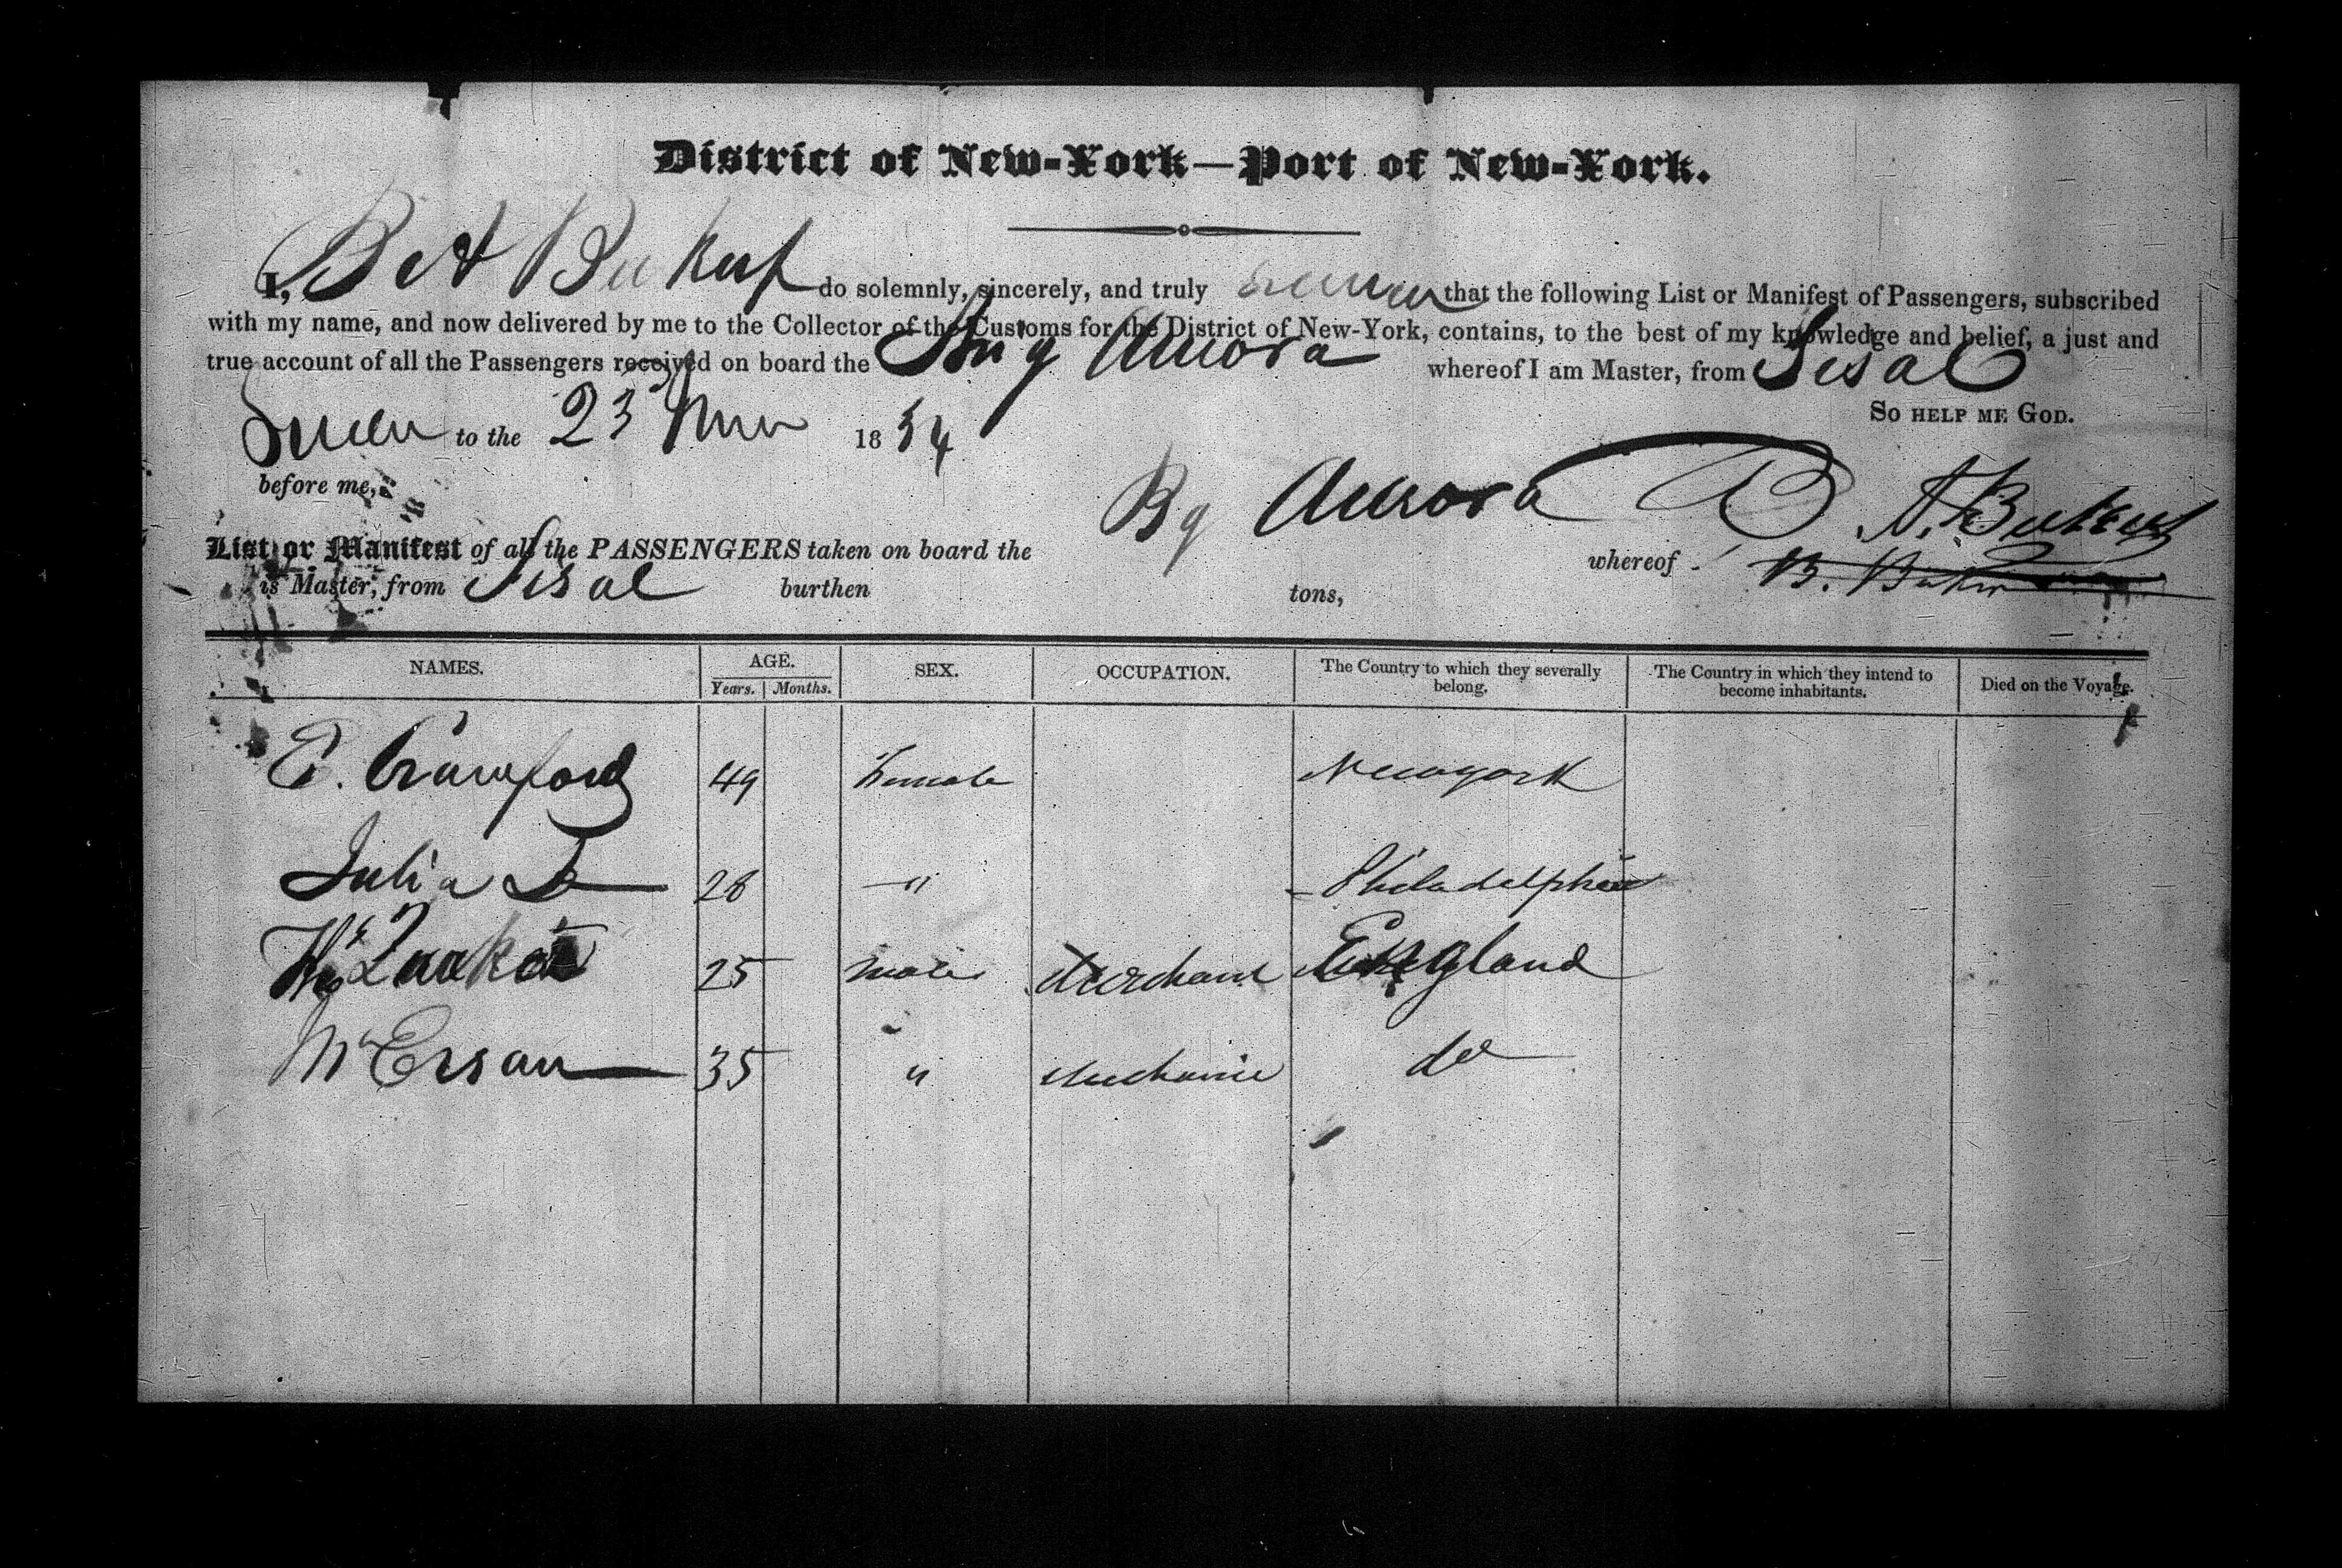 District of New-York—Port of New-York.
I, do solemnly, sincerely, and truly that the following List or Manifest of Passengers, subscribed
with my name, and now delivered by me to the Collector of the Customs for the District of New-York, contains, to the best of my knowledge and belief, a just and
true account of all the Passengers received on board the Aurora whereof I am Master, from Sisal
So help me God.
to the 23 1834
before me,
Bg Aurora
List or Manifest of all the PASSENGERS taken on board the whereof
is Master, from Sisal burthen tons,
NAMES. AGE. SEX. OCCUPATION. The Country to which they severally belong. The Country in which they intend to become inhabitants. Died on the Voyage.
Years. Months.
E. Crawford 49 Female Newyork
Julia 28 " Philadelphia
25 Male Merchant England
35 " Mechanic do